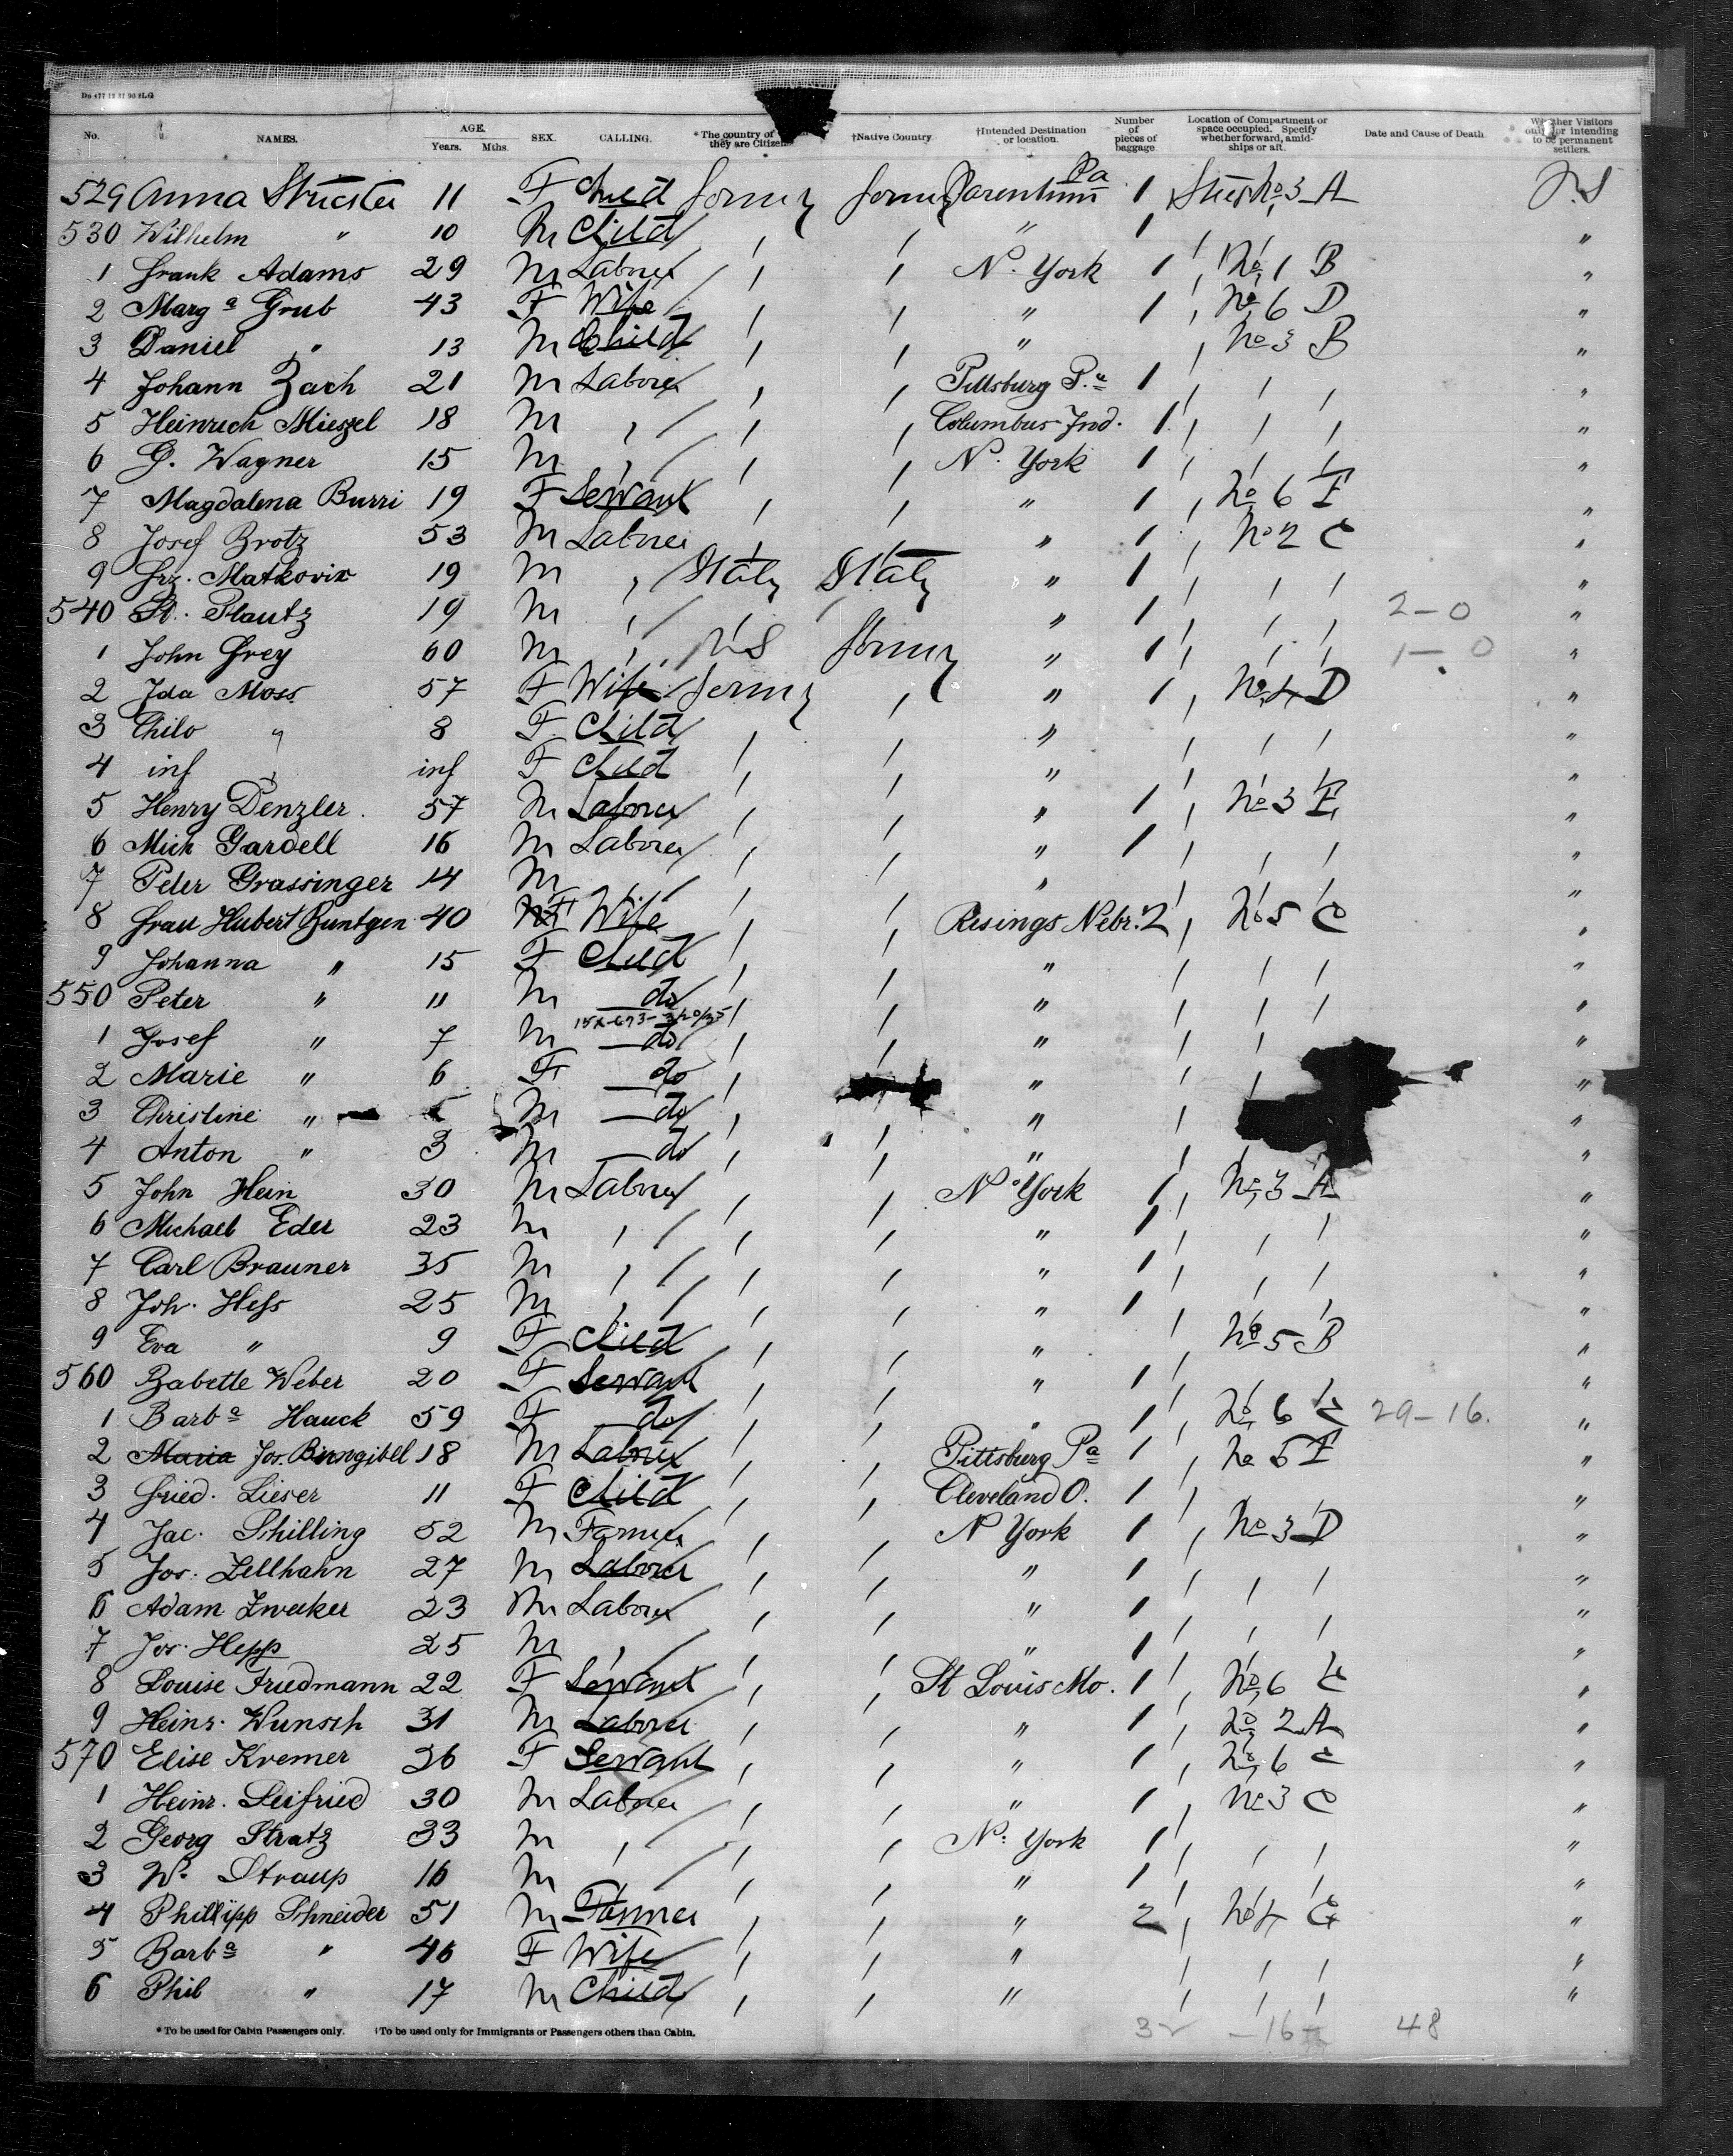 No. NAMES. AGE. Years. Mths. SEX. CALLING. *The country of they are Citizens †Native Country †Intended Destination or location. Number of pieces of baggage Location of Compartment or space occupied. Specify whether forward, amidships or aft. Date and Cause of Death Whether Visitors only or intending to be permanent settlers.
529 Anna 11 F Child Germy Germy Pa 1 No 3 A
530 Wilhelm " 10 M Child ' ' " 1 ' ' ' "
1 Frank Adams 29 M Laborer ' ' N. York 1 ' No 1 B "
2 Marg a Grub 43 F Wife ' ' " 1 ' No 6 D "
3 Daniel " 13 M Child ' ' " ' No 3 B "
4 Johann Zach 21 M Laborer ' ' Pittsburg P.a 1 ' ' ' "
5 Heinrich Mieszel 18 M ' ' ' Columbus Ind. 1 ' ' ' "
6 G. Wagner 15 M ' ' ' N. York 1 ' ' ' "
7 Magdalena Burri 19 F Servant ' ' " 1 ' No 6 F "
8 Josef Brotz 53 M Laborer ' ' " 1 ' No 2 C "
9 Frz. Matkovix 19 M ' Italy Italy " 1 ' ' ' "
540 St. Plautz 19 M ' ' ' " 1 ' ' ' 2-0 "
1 John Grey 60 M ' U S Germy " 1 ' ' ' 1-0 "
2 Ida Moss 57 F Wife Germy ' " 1 ' No 4 D "
3 Thilo " 8 F Child ' ' " ' ' ' "
4 inf ' inf F Child ' ' " ' ' ' "
5 Henry Denzler. 57 M Laborer ' ' " 1 ' No 3 E "
6 Mich Gardell 16 M Laborer ' ' " 1 ' ' ' "
7 Peter Grassinger 14 M ' ' ' " ' ' ' "
8 Frau Hubert Buntgen 40 F Wife ' ' Risings Nebr. 2 ' No 5 C "
9 Johanna " 15 F Child ' ' " ' ' ' "
550 Peter " 11 M do ' ' " ' ' ' "
1 Josef " 7 M do ' ' " ' ' "
2 Marie " 6 F do ' " ' ' "
3 Christine " M do ' " ' "
4 Anton " 3 M do ' ' " ' ' "
5 John Hein 30 M Laborer ' ' N. York 1 ' No 3 A "
6 Michael Eder 23 M ' ' ' " 1 ' ' ' "
7 Carl Brauner 35 M ' ' ' " 1 ' ' ' "
8 Joh. Hess 25 M ' ' ' " 1 ' ' ' "
9 Eva " 9 F Child ' ' " ' No 5 B "
560 Babette Weber 20 F Servant ' ' " 1 ' ' ' "
1 Barb a Hauck 59 F do ' ' " 1 ' No 6 C 29-16. "
2 Maria Jos. Birngibel 18 M Laborer ' ' Pittsburg Pa 1 ' No 5 E "
3 Fried. Lieser 11 F Child ' ' Cleveland O. 1 ' ' ' "
4 Jac. Schilling 52 M Farmer ' ' N York 1 ' No 3 D "
5 Jos. Zellhahn 27 M Laborer ' ' " 1 ' ' ' "
6 Adam Zwecker 23 M Laborer ' ' " 1 ' ' ' "
7 Jos. Hepp 25 M ' ' ' " 1 ' ' ' "
8 Louise Friedmann 22 F Servant ' ' St Louis Mo. 1 ' No 6 C "
9 Heinr. Wunsch 31 M Laborer ' ' " 1 ' No 2 A "
570 Elise Kremer 26 F Servant ' ' " 1 ' No 6 C "
1 Heinr. Seifried 30 M Laborer ' ' " 1 ' No 3 C "
2 Georg Stratz 33 M ' ' ' N. York 1 ' ' ' "
3 W. Straup 16 M ' ' ' " 1 ' ' ' "
4 Phillipp Schneider 51 M Farmer ' ' " 2 ' No 4 G "
5 Barb a " 46 F Wife ' ' " ' ' ' "
6 Phil " 17 M Child ' ' " ' ' ' "
*To be used for Cabin Passengers only. †To be used only for Immigrants or Passengers others than Cabin.
32 -16- 48